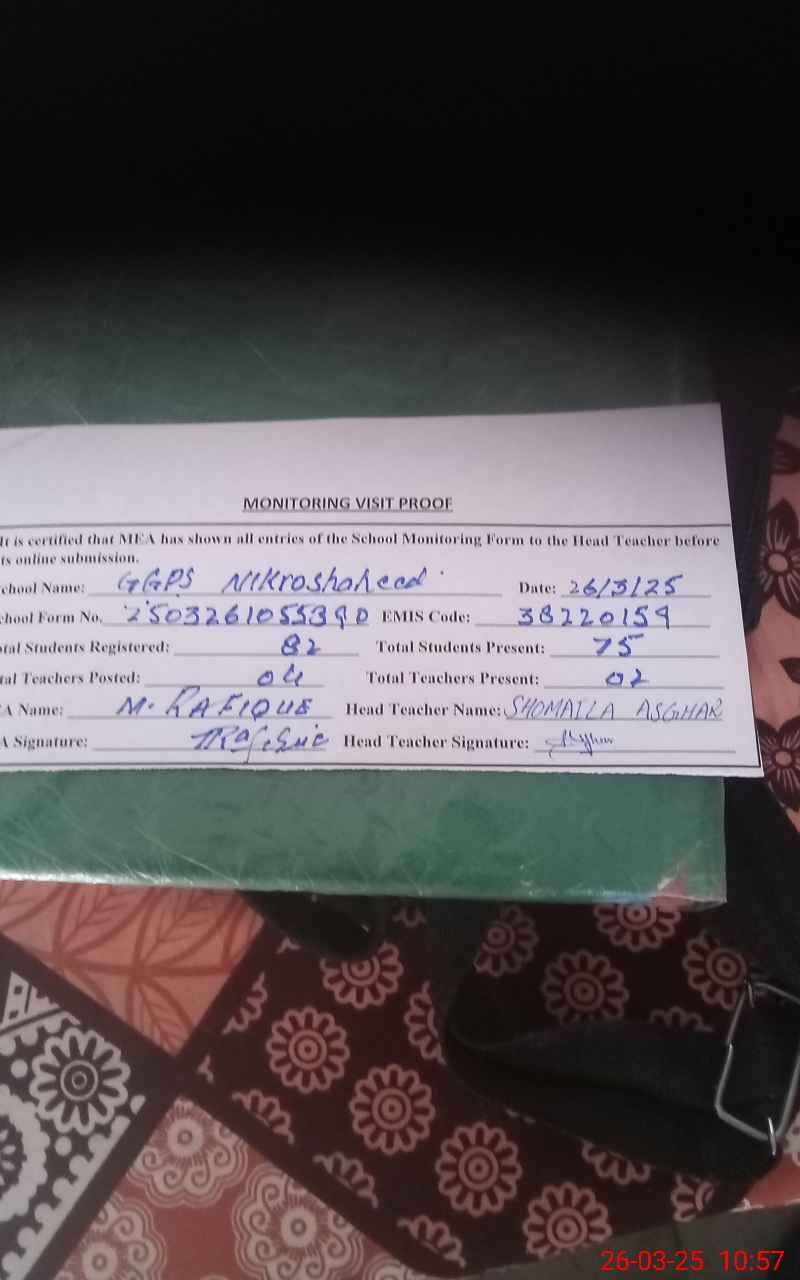 MONITORING VISIT PROOF
It is certified that MEA has shown all entries of the School Monitoring Form to the Head Teacher before
ts online submission.
chool Name: GGPS Nikroshaheed Date: 26/3/25
chool Form No. 2503261055390 EMIS Code: 38220159
tal Students Registered: 82 Total Students Present: 75
tal Teachers Posted: 04 Total Teachers Present: 02
A Name: M. RAFIQUE Head Teacher Name: SHOMAILA ASGHAR
A Signature: Head Teacher Signature:
26-03-25 10:57